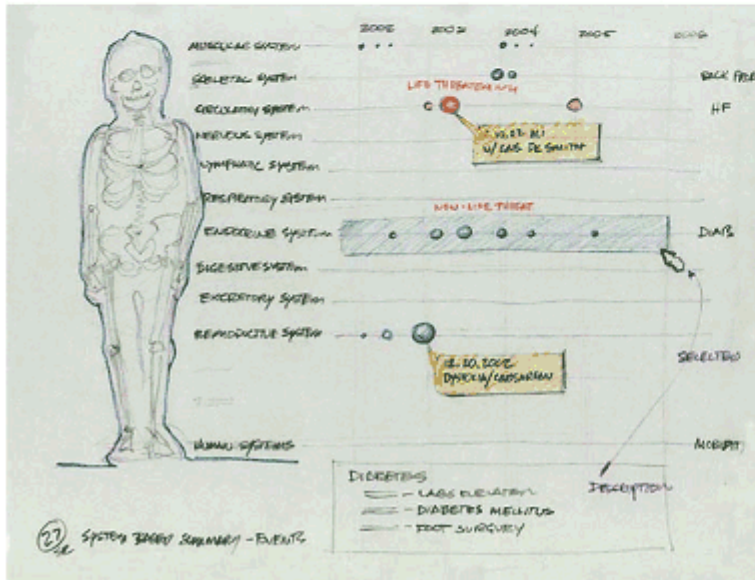 2002 2003 2004 2005 2006
MUSCULAR SYSTEM
SKELETAL SYSTEM BACK PAIN
LIFE THREATENING
CIRCULATORY SYSTEM HF
NERVOUS SYSTEM
W/ DR SMITH
LYMPHATIC SYSTEM
RESPIRATORY SYSTEM
NON-LIFE THREAT
ENDOCRINE SYSTEM DIAB
DIGESTIVE SYSTEM
EXCRETORY SYSTEM
REPRODUCTIVE SYSTEM
12.20.2002
DYSTOCIA/CAESAREAN
SELECTION
HUMAN SYSTEMS
DIABETES
DESCRIPTION
- LABS ELEVATION
- DIABETES MELLITUS
- FOOT SURGERY
27 SYSTEM BASED SUMMARY - EVENTS